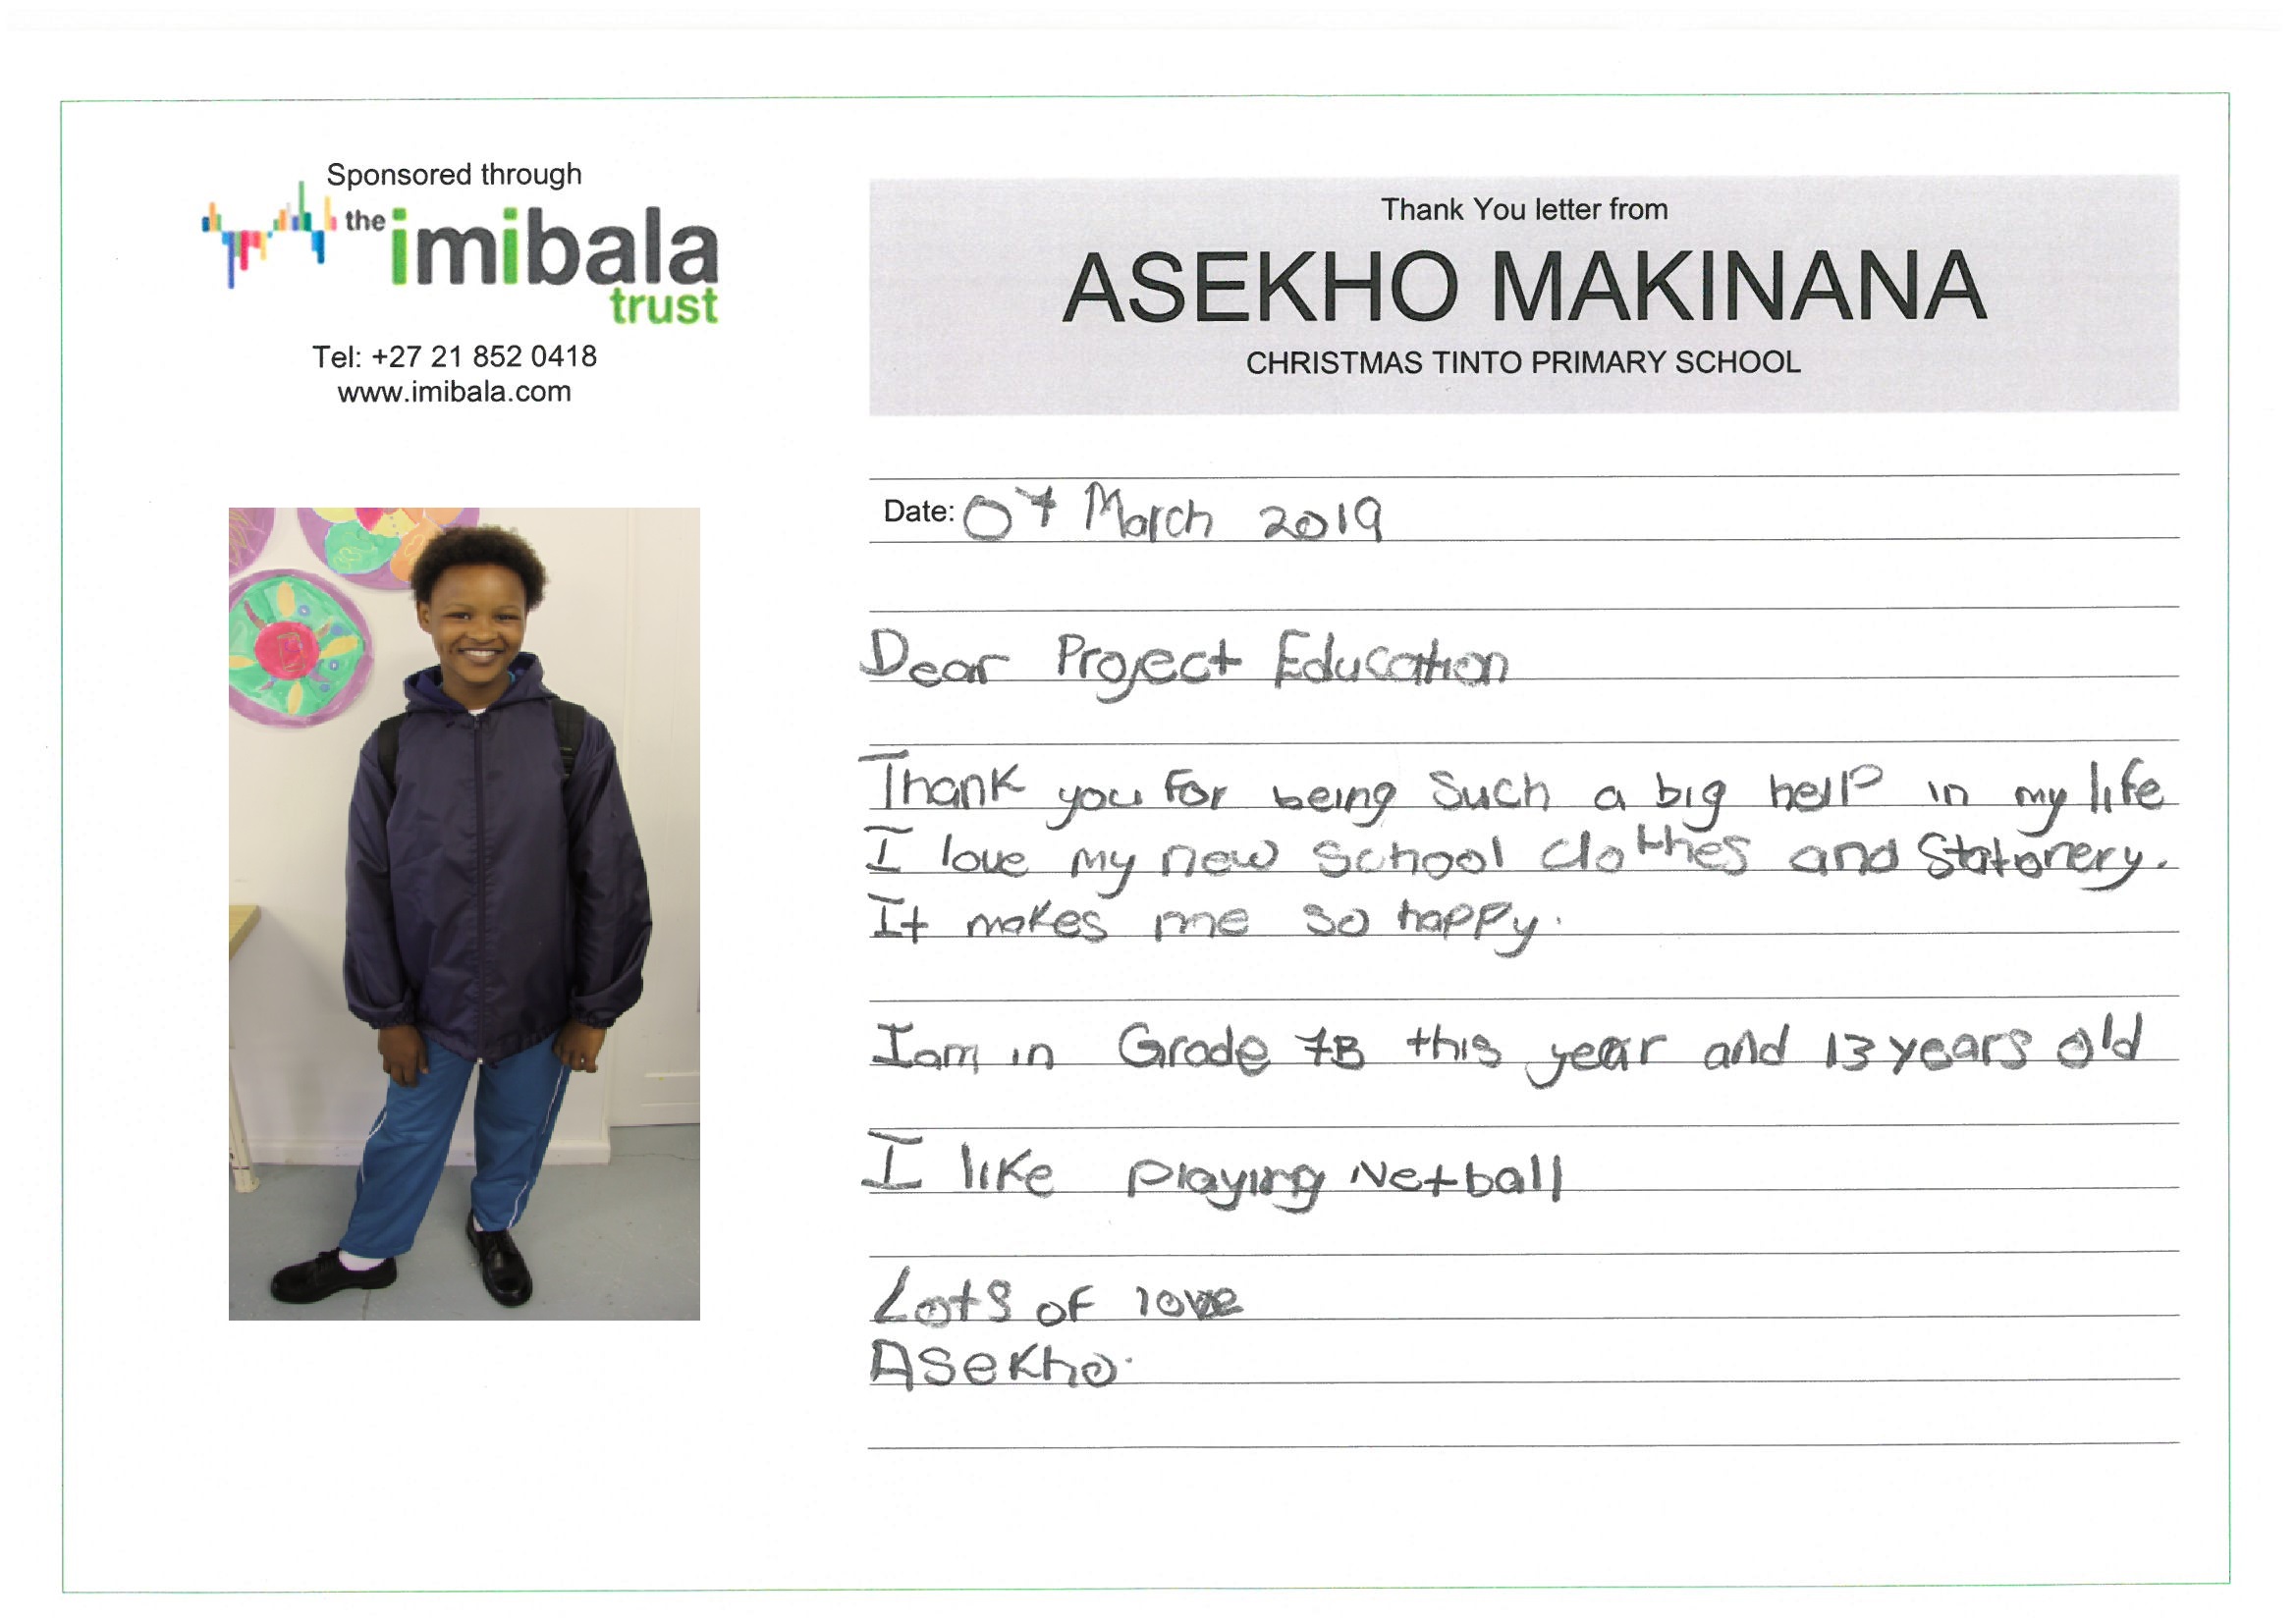 Sponsored through
the imibala
trust
Tel: +27 21 852 0418
www.imibala.com
Thank You letter from
ASEKHO MAKINANA
CHRISTMAS TINTO PRIMARY SCHOOL
Date: 07 March 2019
Dear Project Education
Thank you For being Such a big help in my life
I love my new School clothes and Stationery.
It makes me so happy.
I am in Grade 7B this year and 13 years old
I like playing Netball
Lots of love
Asekho.